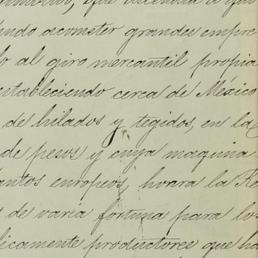 endo acometer grandes empre
lo al giro mercantil propia
estableciendo cerca de México
de hilados y tegidos, en la
de pesos y cuya maquina
antos europeos, honra la Re
s de varia fortuna para los
licamente productores que ha